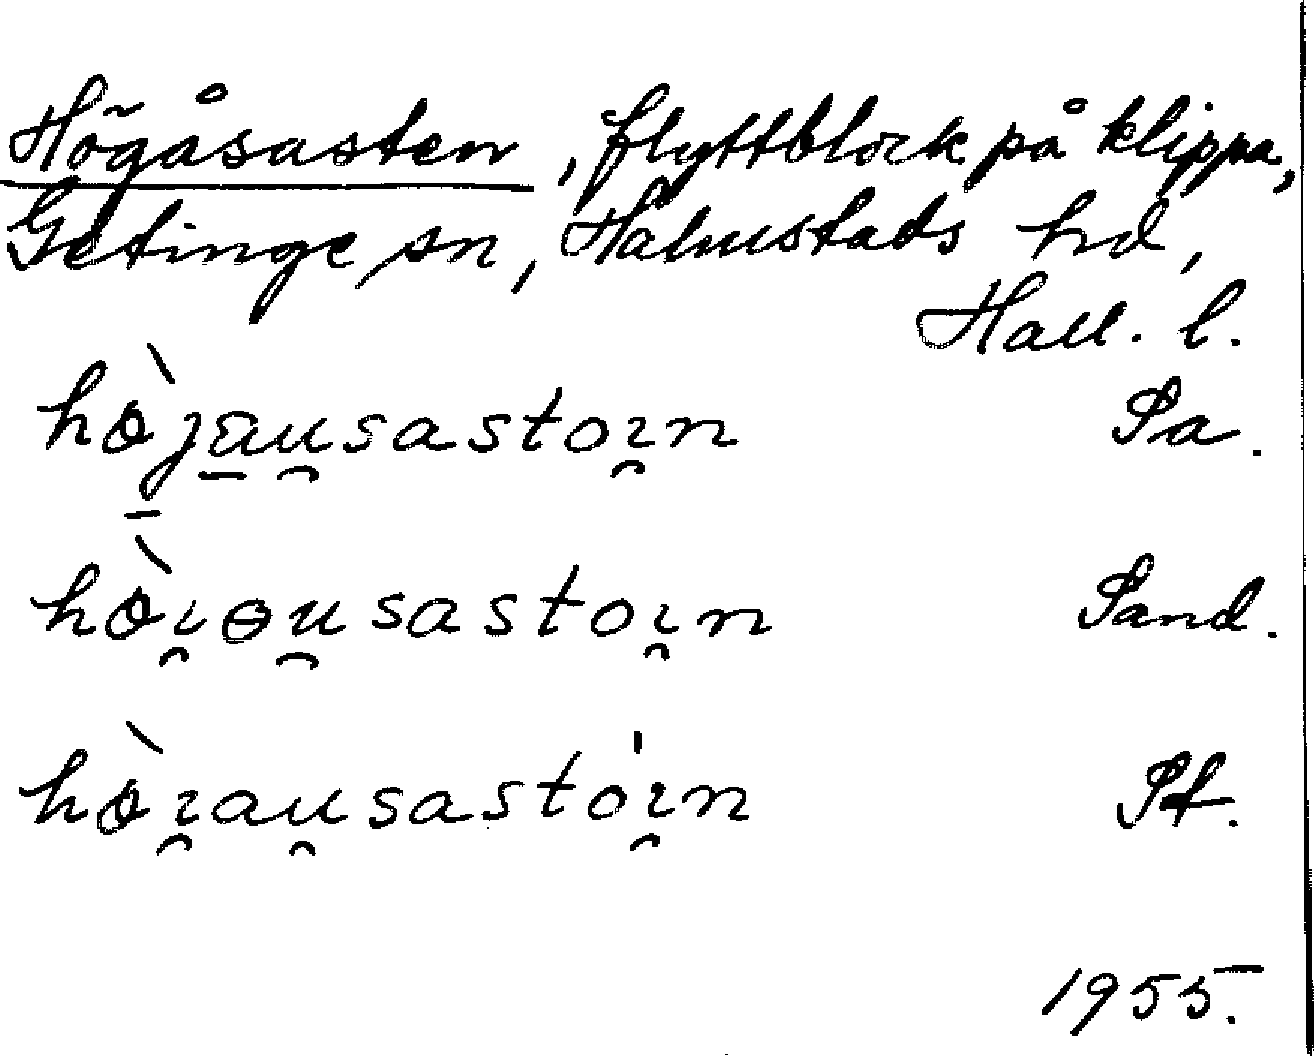 Högåsasten, flyttblock på klippa,
Getinge sn, Halmstads hd,
Hall. l.
hò̱ja̱u̯sastoı̯n Pa.
hòı̯ɵu̯sastoı̯n Sand.
hòı̯au̯sastóı̯n Pf.
1955.